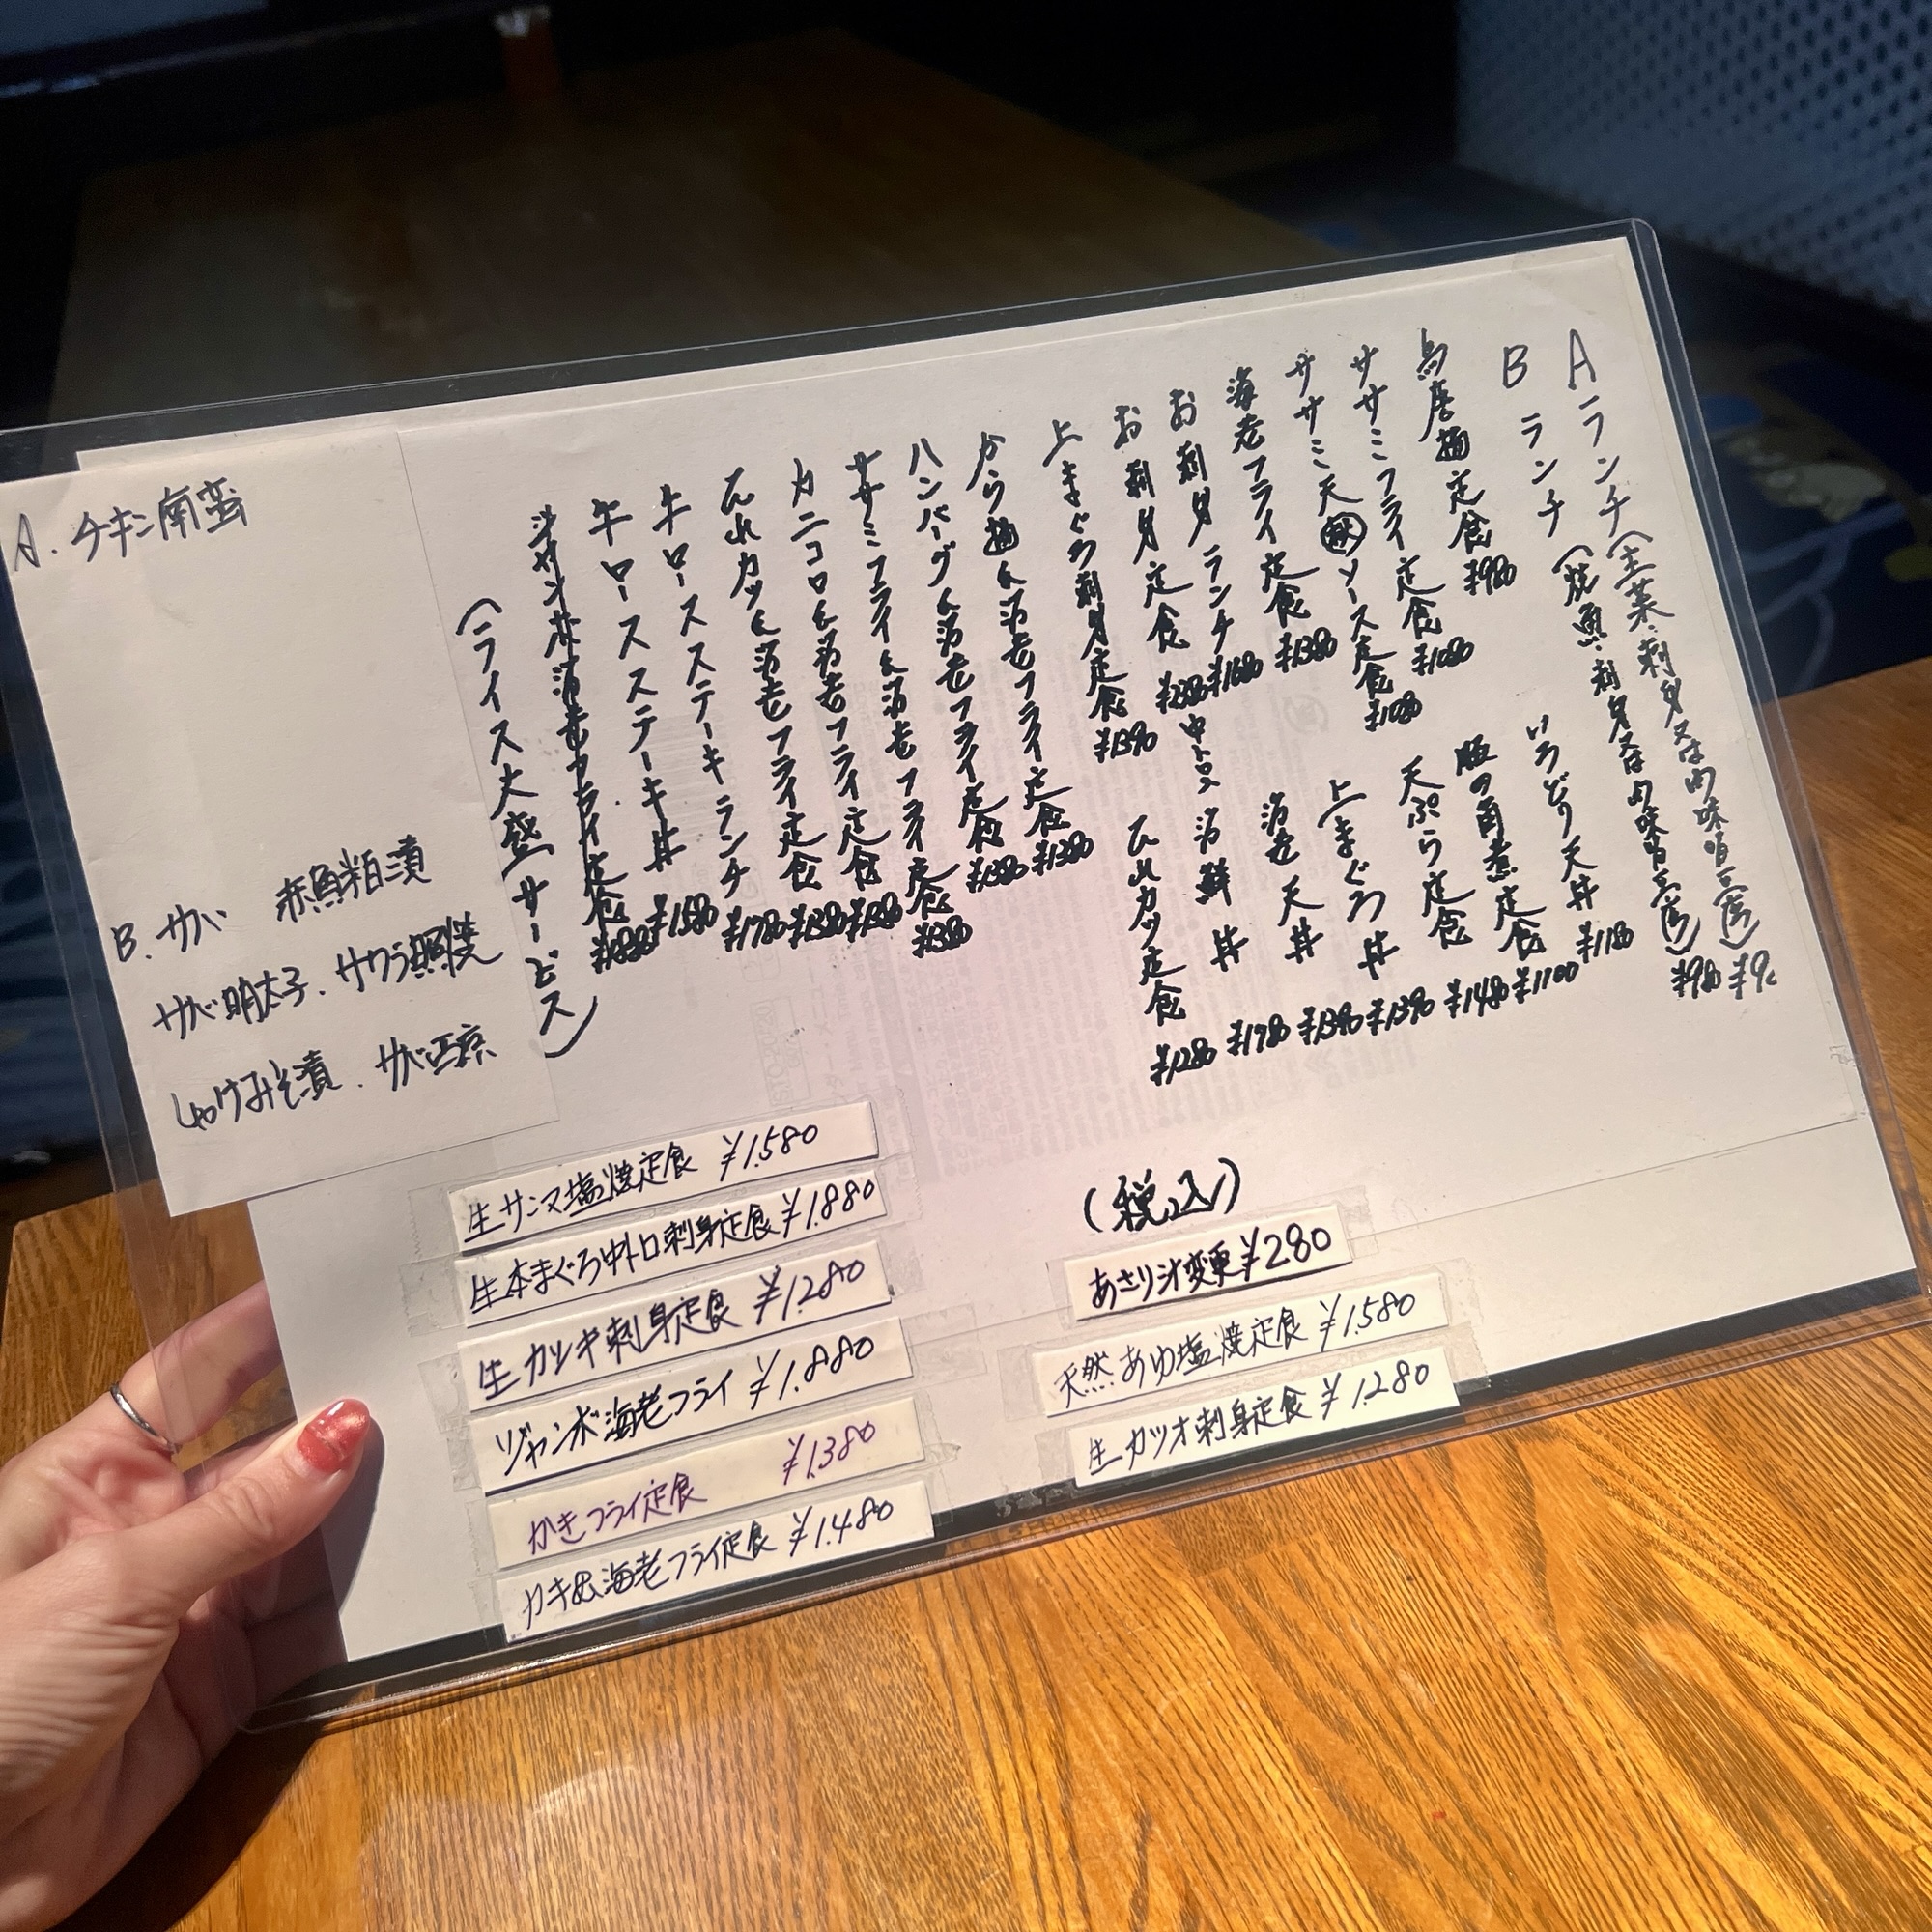 Aランチ(主菜・刺身又は肉 味噌豆腐) ¥9
Bランチ(焼魚・刺身又は肉 味噌豆腐) ¥980
鳥唐揚定食 ¥980
ササミフライ定食 ¥1080
ササミ天 ソース定食 ¥1080
海老フライ定食 ¥1380
お刺身ランチ ¥1680
お刺身定食
上まぐろ刺身定食 ¥1390
から揚と海老フライ定食 ¥1380
ハンバーグと海老フライ定食 ¥1380
ササミフライと海老フライ定食 ¥1380
カニコロと海老フライ定食
ひれカツと海老フライ定食 ¥1380
牛ロースステーキランチ ¥1780
牛ロースステーキ丼 ¥1580
ジャンボ海老フライ定食
(ライス大盛サービス)
いろどり天丼 ¥1180
豚の角煮定食 ¥1100
天ぷら定食 ¥1480
上まぐろ丼 ¥1390
海老天丼 ¥1380
中トロ入海鮮丼 ¥1780
ひれカツ定食 ¥1280
A. チキン南蛮
B. サバ 赤魚粕漬
サバ明太子. サワラ照焼
しゃけみそ漬. サバ西京
生サンマ塩焼定食 ¥1.580
生本まぐろ中トロ刺身定食 ¥1.880
生カツオ刺身定食 ¥1.280
ジャンボ海老フライ ¥1.880
かきフライ定食 ¥1.380
カキ&海老フライ定食 ¥1.480
(税込)
あさり汁変更 ¥280
天然あゆ塩焼定食 ¥1.580
生カツオ刺身定食 ¥1.280